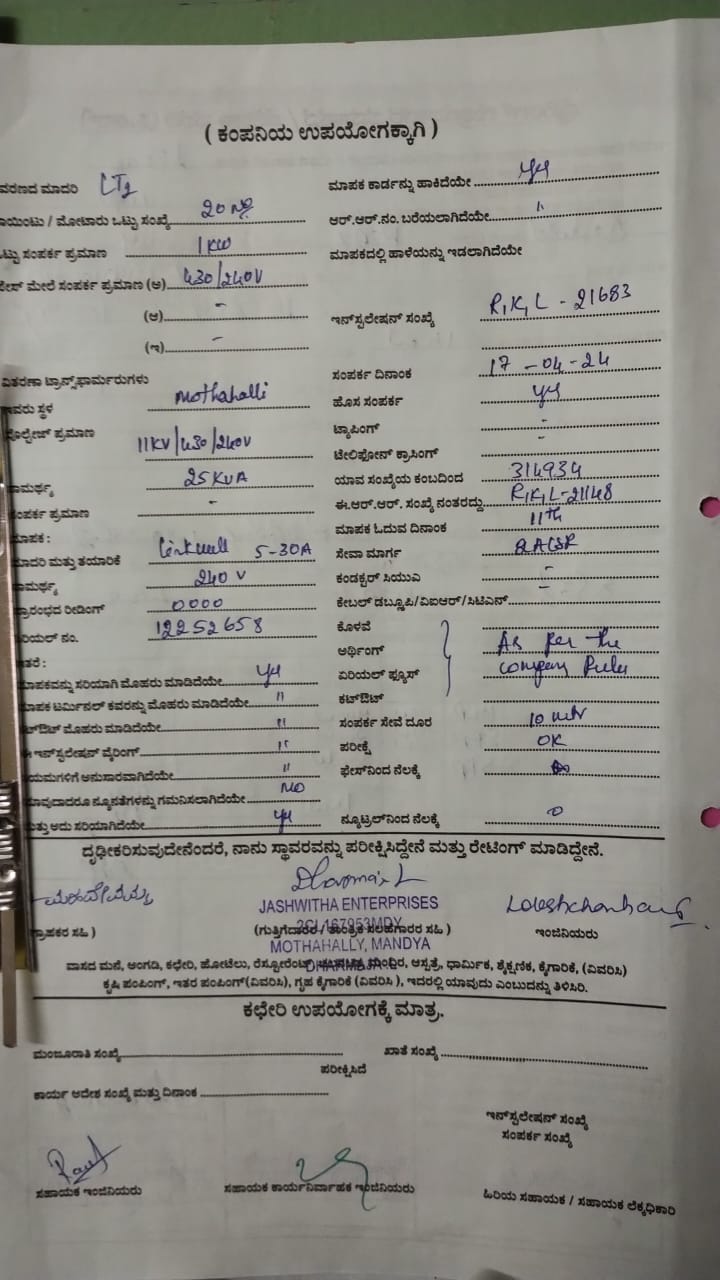 ( ಕಂಪನಿಯ ಉಪಯೋಗಕ್ಕಾಗಿ )
ವರಣದ ಮಾದರಿ LT2 ಮಾಪಕ ಕಾರ್ಡನ್ನು ಹಾಕಿದೆಯೇ yes
ಾಯಿಂಟು / ಮೋಟಾರು ಒಟ್ಟು ಸಂಖ್ಯೆ 20 ಆರ್.ಆರ್.ನಂ. ಬರೆಯಲಾಗಿದೆಯೇ "
ಟ್ಟು ಸಂಪರ್ಕ ಪ್ರಮಾಣ 1 KW ಮಾಪಕದಲ್ಲಿ ಹಾಳೆಯನ್ನು ಇಡಲಾಗಿದೆಯೇ
ಕೇಸ್ ಮೇಲೆ ಸಂಪರ್ಕ ಪ್ರಮಾಣ (ಅ) 430/240V
(ಆ) - ಇನ್‌ಸ್ಟಲೇಷನ್ ಸಂಖ್ಯೆ R,K,L - 21683
(ಇ) -
ವಿತರಣಾ ಟ್ರಾನ್ಸ್‌ಫಾರ್ಮರುಗಳು ಸಂಪರ್ಕ ದಿನಾಂಕ 17 - 04 - 24
ಅವರು ಸ್ಥಳ Mothahalli ಹೊಸ ಸಂಪರ್ಕ yes
ವೋಲ್ಟೇಜ್ ಪ್ರಮಾಣ 11KV/430/240V ಟ್ಯಾಪಿಂಗ್ -
ಟೆಲಿಫೋನ್ ಕ್ರಾಸಿಂಗ್ -
ಾಮರ್ಥ್ಯ 25KVA ಯಾವ ಸಂಖ್ಯೆಯ ಕಂಬದಿಂದ 314934
ಸಂಪರ್ಕ ಪ್ರಮಾಣ - ಈ.ಆರ್.ಆರ್. ಸಂಖ್ಯೆ ನಂತರದ್ದು R,K,L-21148
ಮಾಪಕ : ಮಾಪಕ ಓದುವ ದಿನಾಂಕ 11th
ಮಾದರಿ ಮತ್ತು ತಯಾರಿಕೆ 5-30A ಸೇವಾ ಮಾರ್ಗ
ಾಮರ್ಥ್ಯ 240 V ಕಂಡಕ್ಟರ್ ಸಿಯುಎ -
ಪ್ರಾರಂಭದ ರೀಡಿಂಗ್ 0000 ಕೇಬಲ್ ಡಬ್ಲ್ಯೂಪಿ/ವಿಐಆರ್/ಸಿಟಿಎಸ್ -
ರಿಯಲ್ ನಂ. 12252658 ಕೊಳವೆ
ಇತರೆ : ಅರ್ಥಿಂಗ್ As per the
ಮಾಪಕವನ್ನು ಸರಿಯಾಗಿ ಮೊಹರು ಮಾಡಿದೆಯೇ yes ಏರಿಯಲ್ ಫ್ಯೂಸ್ company Rules
ಮಾಪಕ ಟರ್ಮಿನಲ್ ಕವರನ್ನು ಮೊಹರು ಮಾಡಿದೆಯೇ " ಕಟ್‌ಔಟ್
ಟ್‌ಔಟ್ ಮೊಹರು ಮಾಡಿದೆಯೇ " ಸಂಪರ್ಕ ಸೇವೆ ದೂರ 10 mtr
ಈ ಇನ್‌ಸ್ಟಲೇಷನ್ ವೈರಿಂಗ್ " ಪರೀಕ್ಷೆ OK
ಯಮಗಳಿಗೆ ಅನುಸಾರವಾಗಿದೆಯೇ " ಫೇಸ್‌ನಿಂದ ನೆಲಕ್ಕೆ
ಯಾವುದಾದರೂ ನ್ಯೂನತೆಗಳನ್ನು ಗಮನಿಸಲಾಗಿದೆಯೇ No
ಮತ್ತು ಅದು ಸರಿಯಾಗಿದೆಯೇ yes ನ್ಯೂಟ್ರಲ್‌ನಿಂದ ನೆಲಕ್ಕೆ 0
ದೃಢೀಕರಿಸುವುದೇನೆಂದರೆ, ನಾನು ಸ್ಥಾವರವನ್ನು ಪರೀಕ್ಷಿಸಿದ್ದೇನೆ ಮತ್ತು ರೇಟಿಂಗ್ ಮಾಡಿದ್ದೇನೆ.
JASHWITHA ENTERPRISES
ಗ್ರಾಹಕರ ಸಹಿ ) (ಗುತ್ತಿಗೆದಾರರ / ತಾಂತ್ರಿಕ ಸಲಹೆಗಾರರ ಸಹಿ ) ಇಂಜಿನಿಯರು
MOTHAHALLY, MANDYA
ವಾಸದ ಮನೆ, ಅಂಗಡಿ, ಕಛೇರಿ, ಹೋಟೆಲು, ರೆಸ್ಟೋರೆಂಟ್, ಮಂದಿರ, ಆಸ್ಪತ್ರೆ, ಧಾರ್ಮಿಕ, ಶೈಕ್ಷಣಿಕ, ಕೈಗಾರಿಕೆ, (ವಿವರಿಸಿ)
ಕೃಷಿ ಪಂಪಿಂಗ್, ಇತರ ಪಂಪಿಂಗ್(ವಿವರಿಸಿ), ಗೃಹ ಕೈಗಾರಿಕೆ (ವಿವರಿಸಿ ), ಇದರಲ್ಲಿ ಯಾವುದು ಎಂಬುದನ್ನು ತಿಳಿಸಿರಿ.
ಕಛೇರಿ ಉಪಯೋಗಕ್ಕೆ ಮಾತ್ರ.
ಮಂಜೂರಾತಿ ಸಂಖ್ಯೆ ಖಾತೆ ಸಂಖ್ಯೆ
ಪರೀಕ್ಷಿಸಿದೆ
ಕಾರ್ಯ ಆದೇಶ ಸಂಖ್ಯೆ ಮತ್ತು ದಿನಾಂಕ
ಇನ್‌ಸ್ಟಲೇಷನ್ ಸಂಖ್ಯೆ
ಸಂಪರ್ಕ ಸಂಖ್ಯೆ
ಸಹಾಯಕ ಇಂಜಿನಿಯರು ಸಹಾಯಕ ಕಾರ್ಯನಿರ್ವಾಹಕ ಇಂಜಿನಿಯರು ಹಿರಿಯ ಸಹಾಯಕ / ಸಹಾಯಕ ಲೆಕ್ಕಾಧಿಕಾರಿ